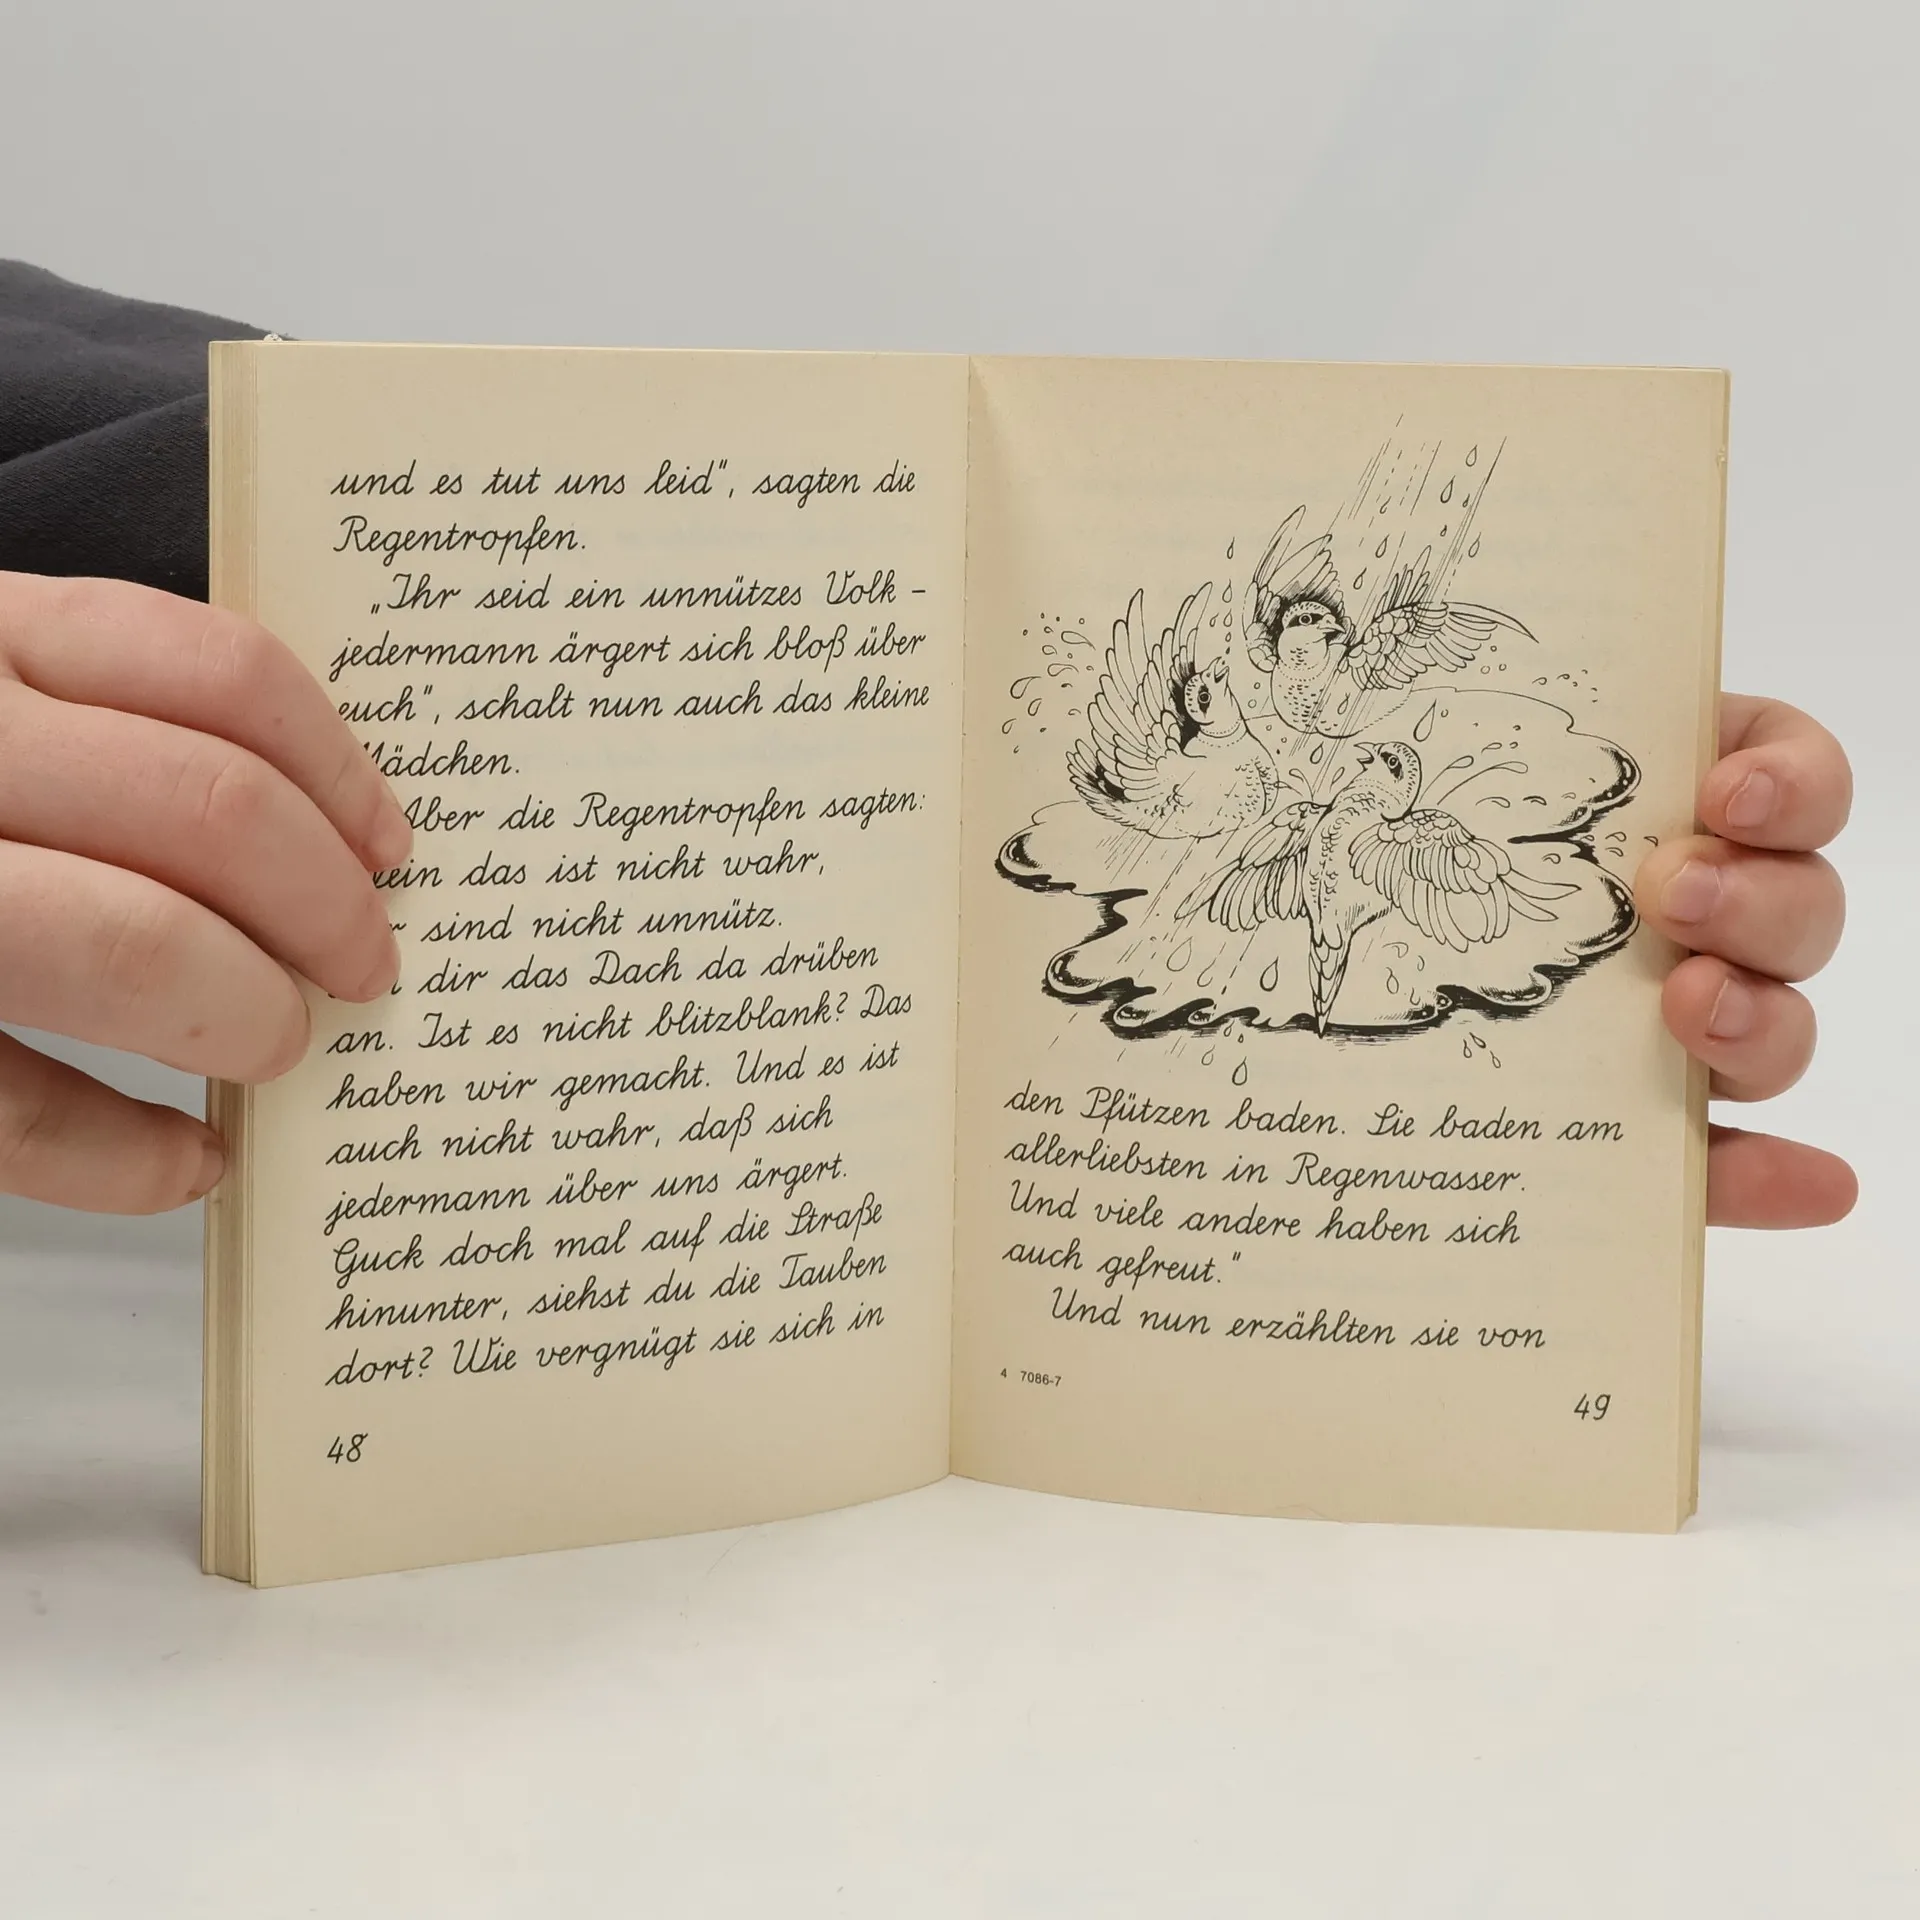 und es tut uns leid", sagten die
Regentropfen.
„Ihr seid ein unnützes Volk –
jedermann ärgert sich bloß über
euch", schalt nun auch das kleine
Mädchen.
Aber die Regentropfen sagten:
das ist nicht wahr,
sind nicht unnütz.
dir das Dach da drüben
an. Ist es nicht blitzblank? Das
haben wir gemacht. Und es ist
auch nicht wahr, daß sich
jedermann über uns ärgert.
Guck doch mal auf die Straße
hinunter, siehst du die Tauben
dort? Wie vergnügt sie sich in
48
den Pfützen baden. Sie baden am
allerliebsten in Regenwasser.
Und viele andere haben sich
auch gefreut."
Und nun erzählten sie von
4 7086-7
49